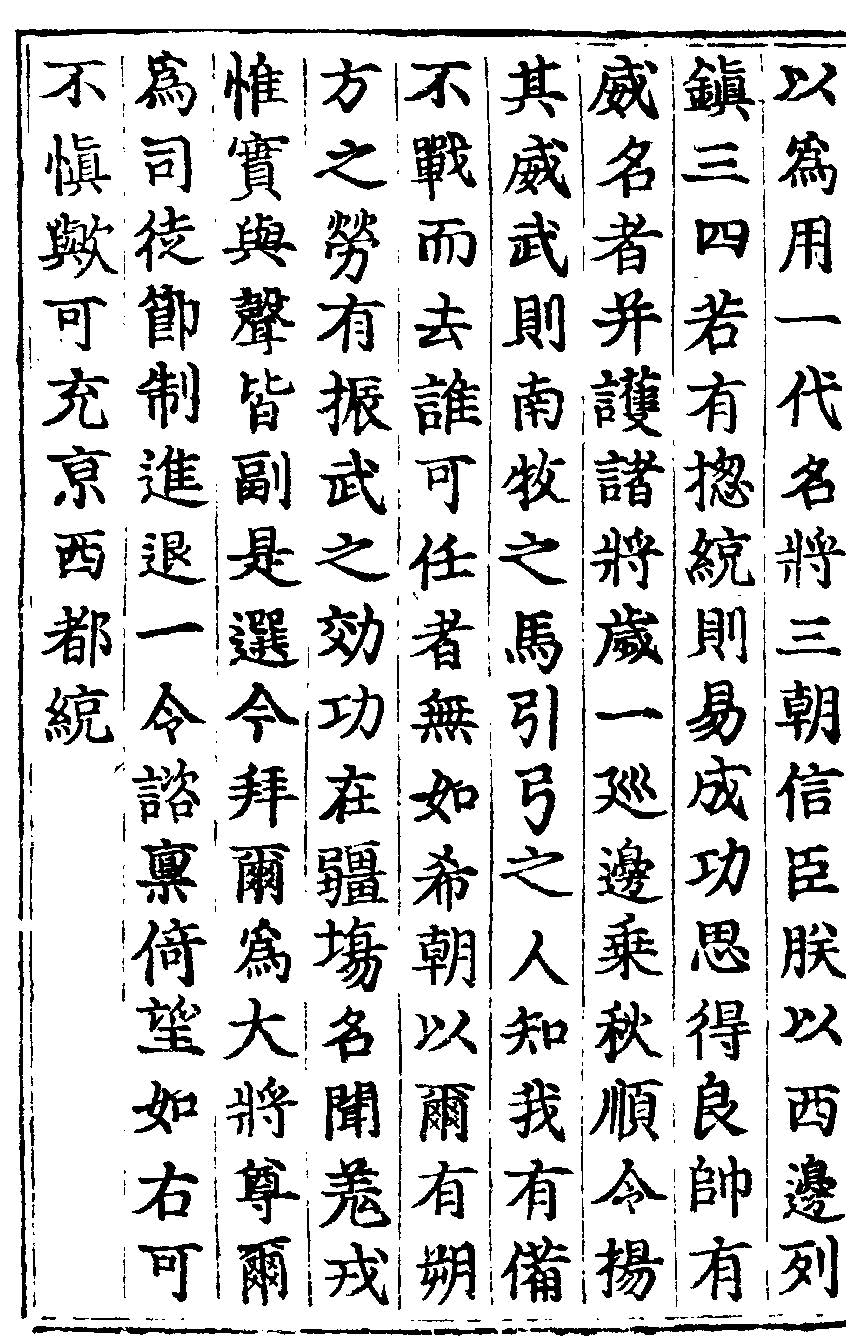 以爲用一代名將三朝信臣朕以西邊列
鎭三四若有揔統則易成功思得良帥有
威名者并護諸將歲一廵邊乗秋順令揚
其威武則南牧之馬引弓之人知我有備
不戰而去誰可任者無如希朝以爾有朔
方之勞有振武之効功在疆塲名聞羗戎
惟實與聲皆副是選今拜爾爲大將尊爾
爲司徒節制進退一令諮稟倚望如右可
不愼歟可充京西都統